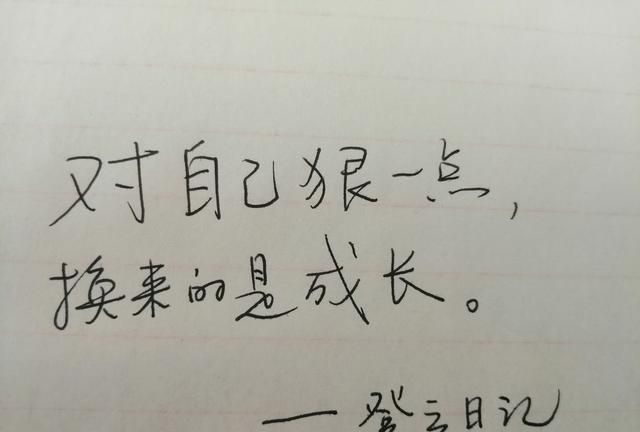 对自己狠一点,
换来的是成长。
——登云日记